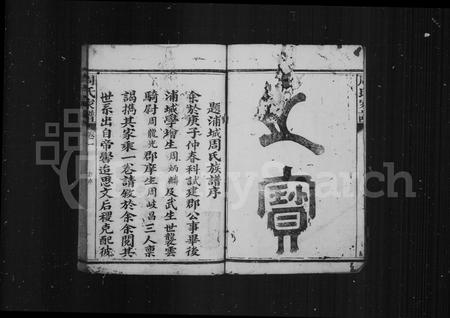 之寶
題浦城周氏族譜序
余於庚子仲春科試建郡公事畢後
浦城學增生周炳麟及武生世襲雲
騎尉周龍光郡庠生周岐昌三人稟
謁携其家乘一卷請敘於余余閱其
世系出自帝嚳追思文后稷克配彼
周氏家譜 卷一